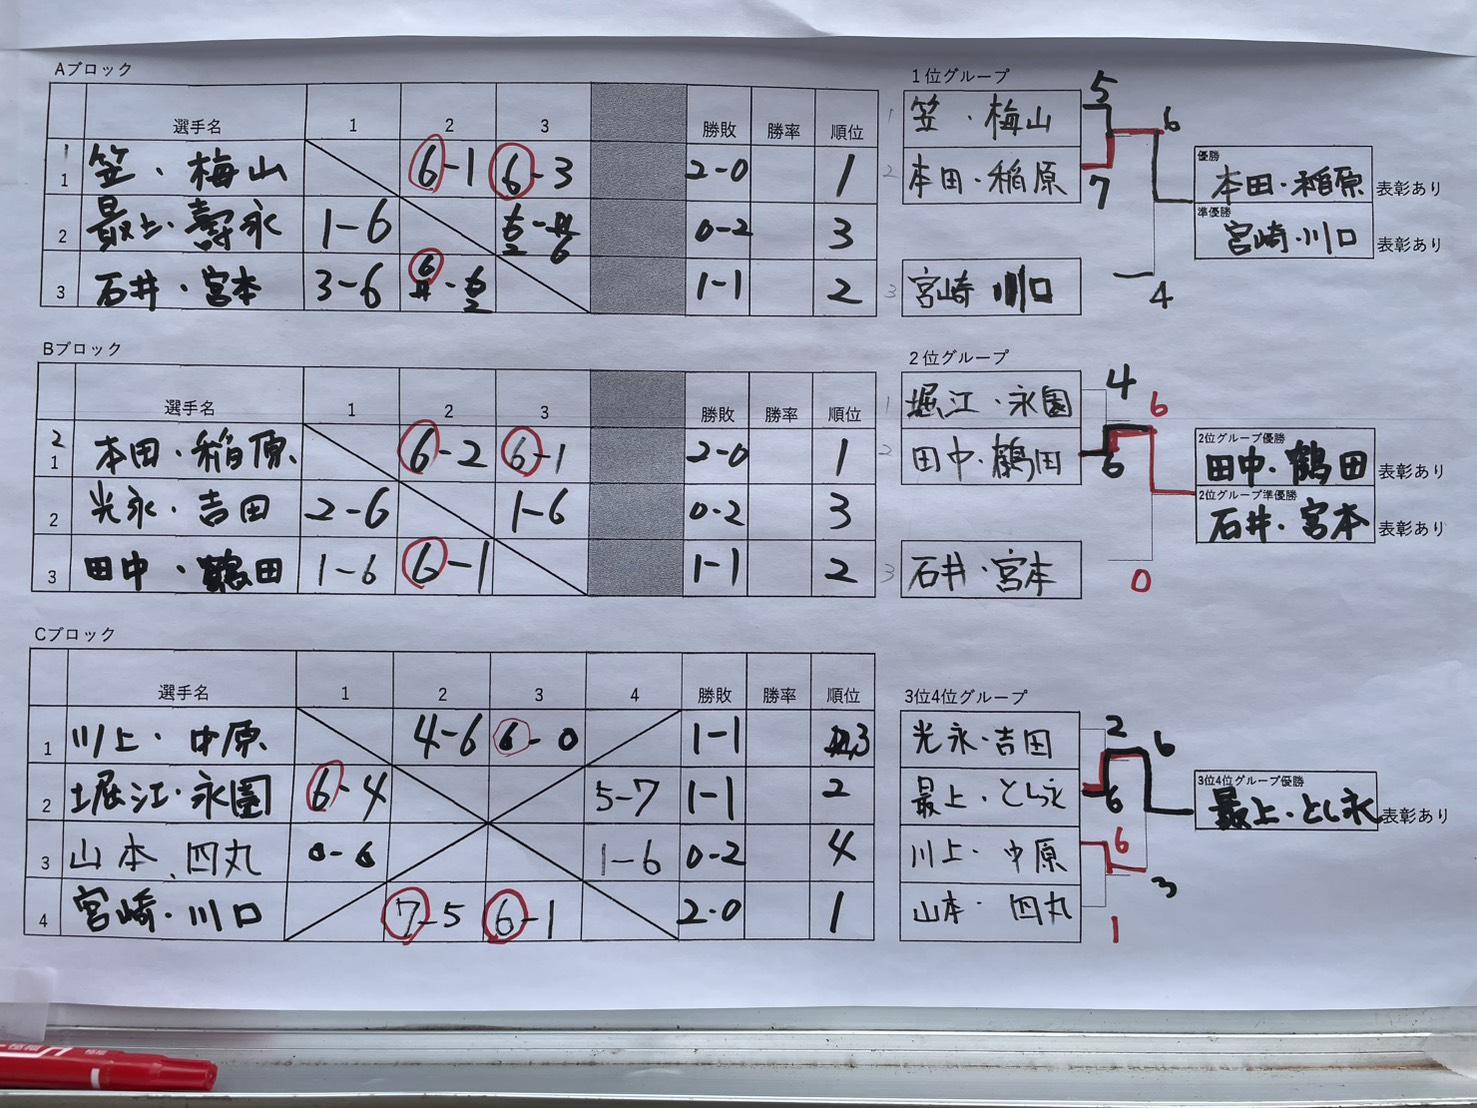 Aブロック
選手名 1 2 3 勝敗 勝率 順位
1 1 笠・梅山 6-1 6-3 2-0 1
2 最上・壽永 1-6 2 6 0-2 3
3 石井・宮本 3-6 6 2 1-1 2
Bブロック
選手名 1 2 3 勝敗 勝率 順位
2 1 本田・稲原 6-2 6-1 2-0 1
2 光永・吉田 2-6 1-6 0-2 3
3 田中・鶴田 1-6 6-1 1-1 2
Cブロック
選手名 1 2 3 4 勝敗 勝率 順位
1 川上・中原 4-6 6-0 1-1 3
2 堀江・永園 6-4 5-7 1-1 2
3 山本・四丸 0-6 1-6 0-2 4
4 宮崎・川口 7-5 6-1 2-0 1
1位グループ
1 笠・梅山 5
2 本田・稲原 7
6
3 宮崎 川口
4
優勝
本田・稲原 表彰あり
準優勝
宮崎・川口 表彰あり
2位グループ
1 堀江・永園 4
2 田中・鶴田 6
6
3 石井・宮本
0
2位グループ優勝
田中・鶴田 表彰あり
2位グループ準優勝
石井・宮本 表彰あり
3位4位グループ
光永・吉田 2
最上・とし永 6
6
川上・中原 6
3
山本・四丸 1
3位4位グループ優勝
最上・とし永 表彰あり